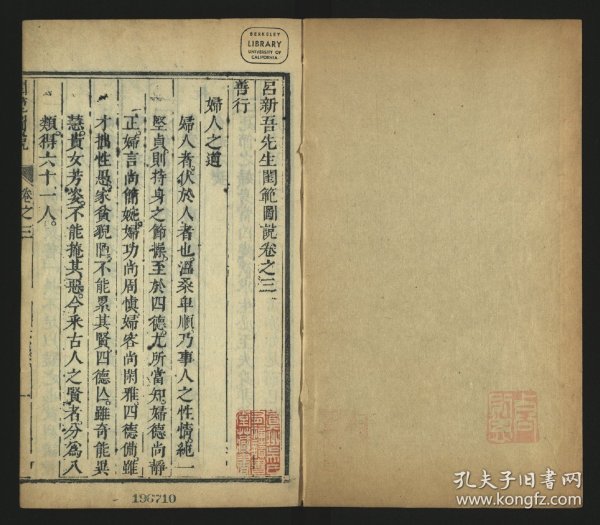 BERKELEY
LIBRARY
UNIVERSITY OF
CALIFORNIA
呂新吾先生閨範圖說卷之三
善行
婦人之道
婦人者伏於人者也溫柔卑順乃事人之性情純一
堅貞則持身之節操至於四德尤所當知婦德尚靜
正婦言尚簡婉婦功尚周慎婦容尚閑雅四德備雖
才拙性愚家貧貌陋不能累其賢四德亾雖奇能異
慧貴女芳姿不能掩其惡今釆古人之賢者分為八
類得六十一人
卷之三
196710
孔夫子旧书网
www.kongfz.com